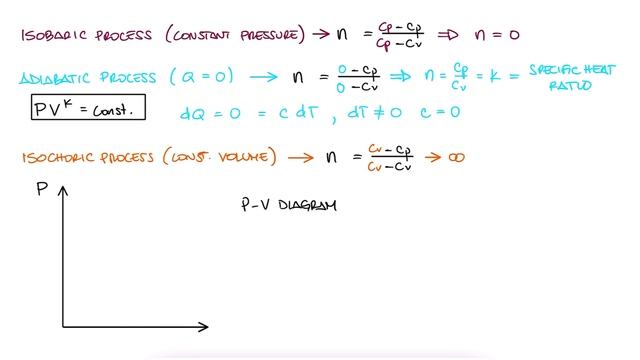 ISOBARIC PROCESS (CONSTANT PRESSURE) → n = (Cp - Cp)/(Cp - Cv) ⇒ n = 0
ADIABATIC PROCESS (Q = 0) → n = (0 - Cp)/(0 - Cv) ⇒ n = Cp/Cv = K = SPECIFIC HEAT RATIO
PV^K = const. dQ = 0 = c dT , dT ≠ 0 c = 0
ISOCHORIC PROCESS (CONST. VOLUME) → n = (Cv - Cp)/(Cv - Cv) → ∞
P
P-V DIAGRAM